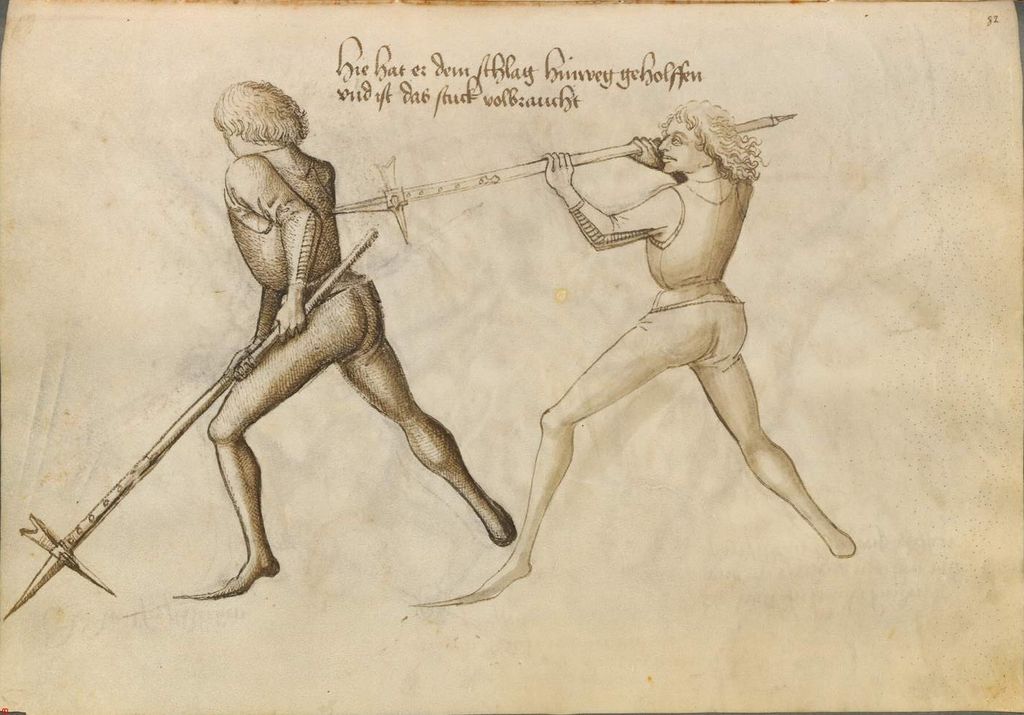 Hie hat er dem schlag hinweg geholffen
vnd ist das stuck volbraucht
52